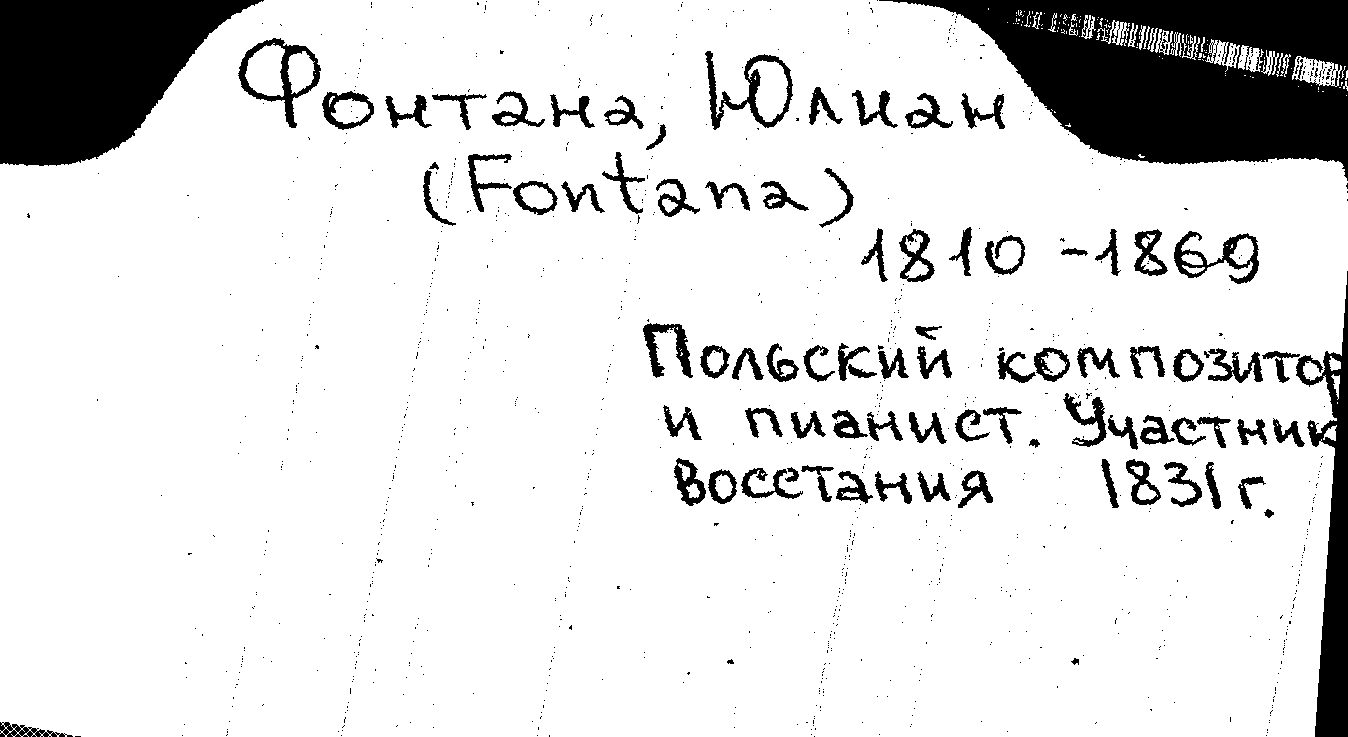 Фонтана, Юлиан
(Fontana)
1810 - 1869
Польский композитор
и пианист. Участник
восстания 1831 г.